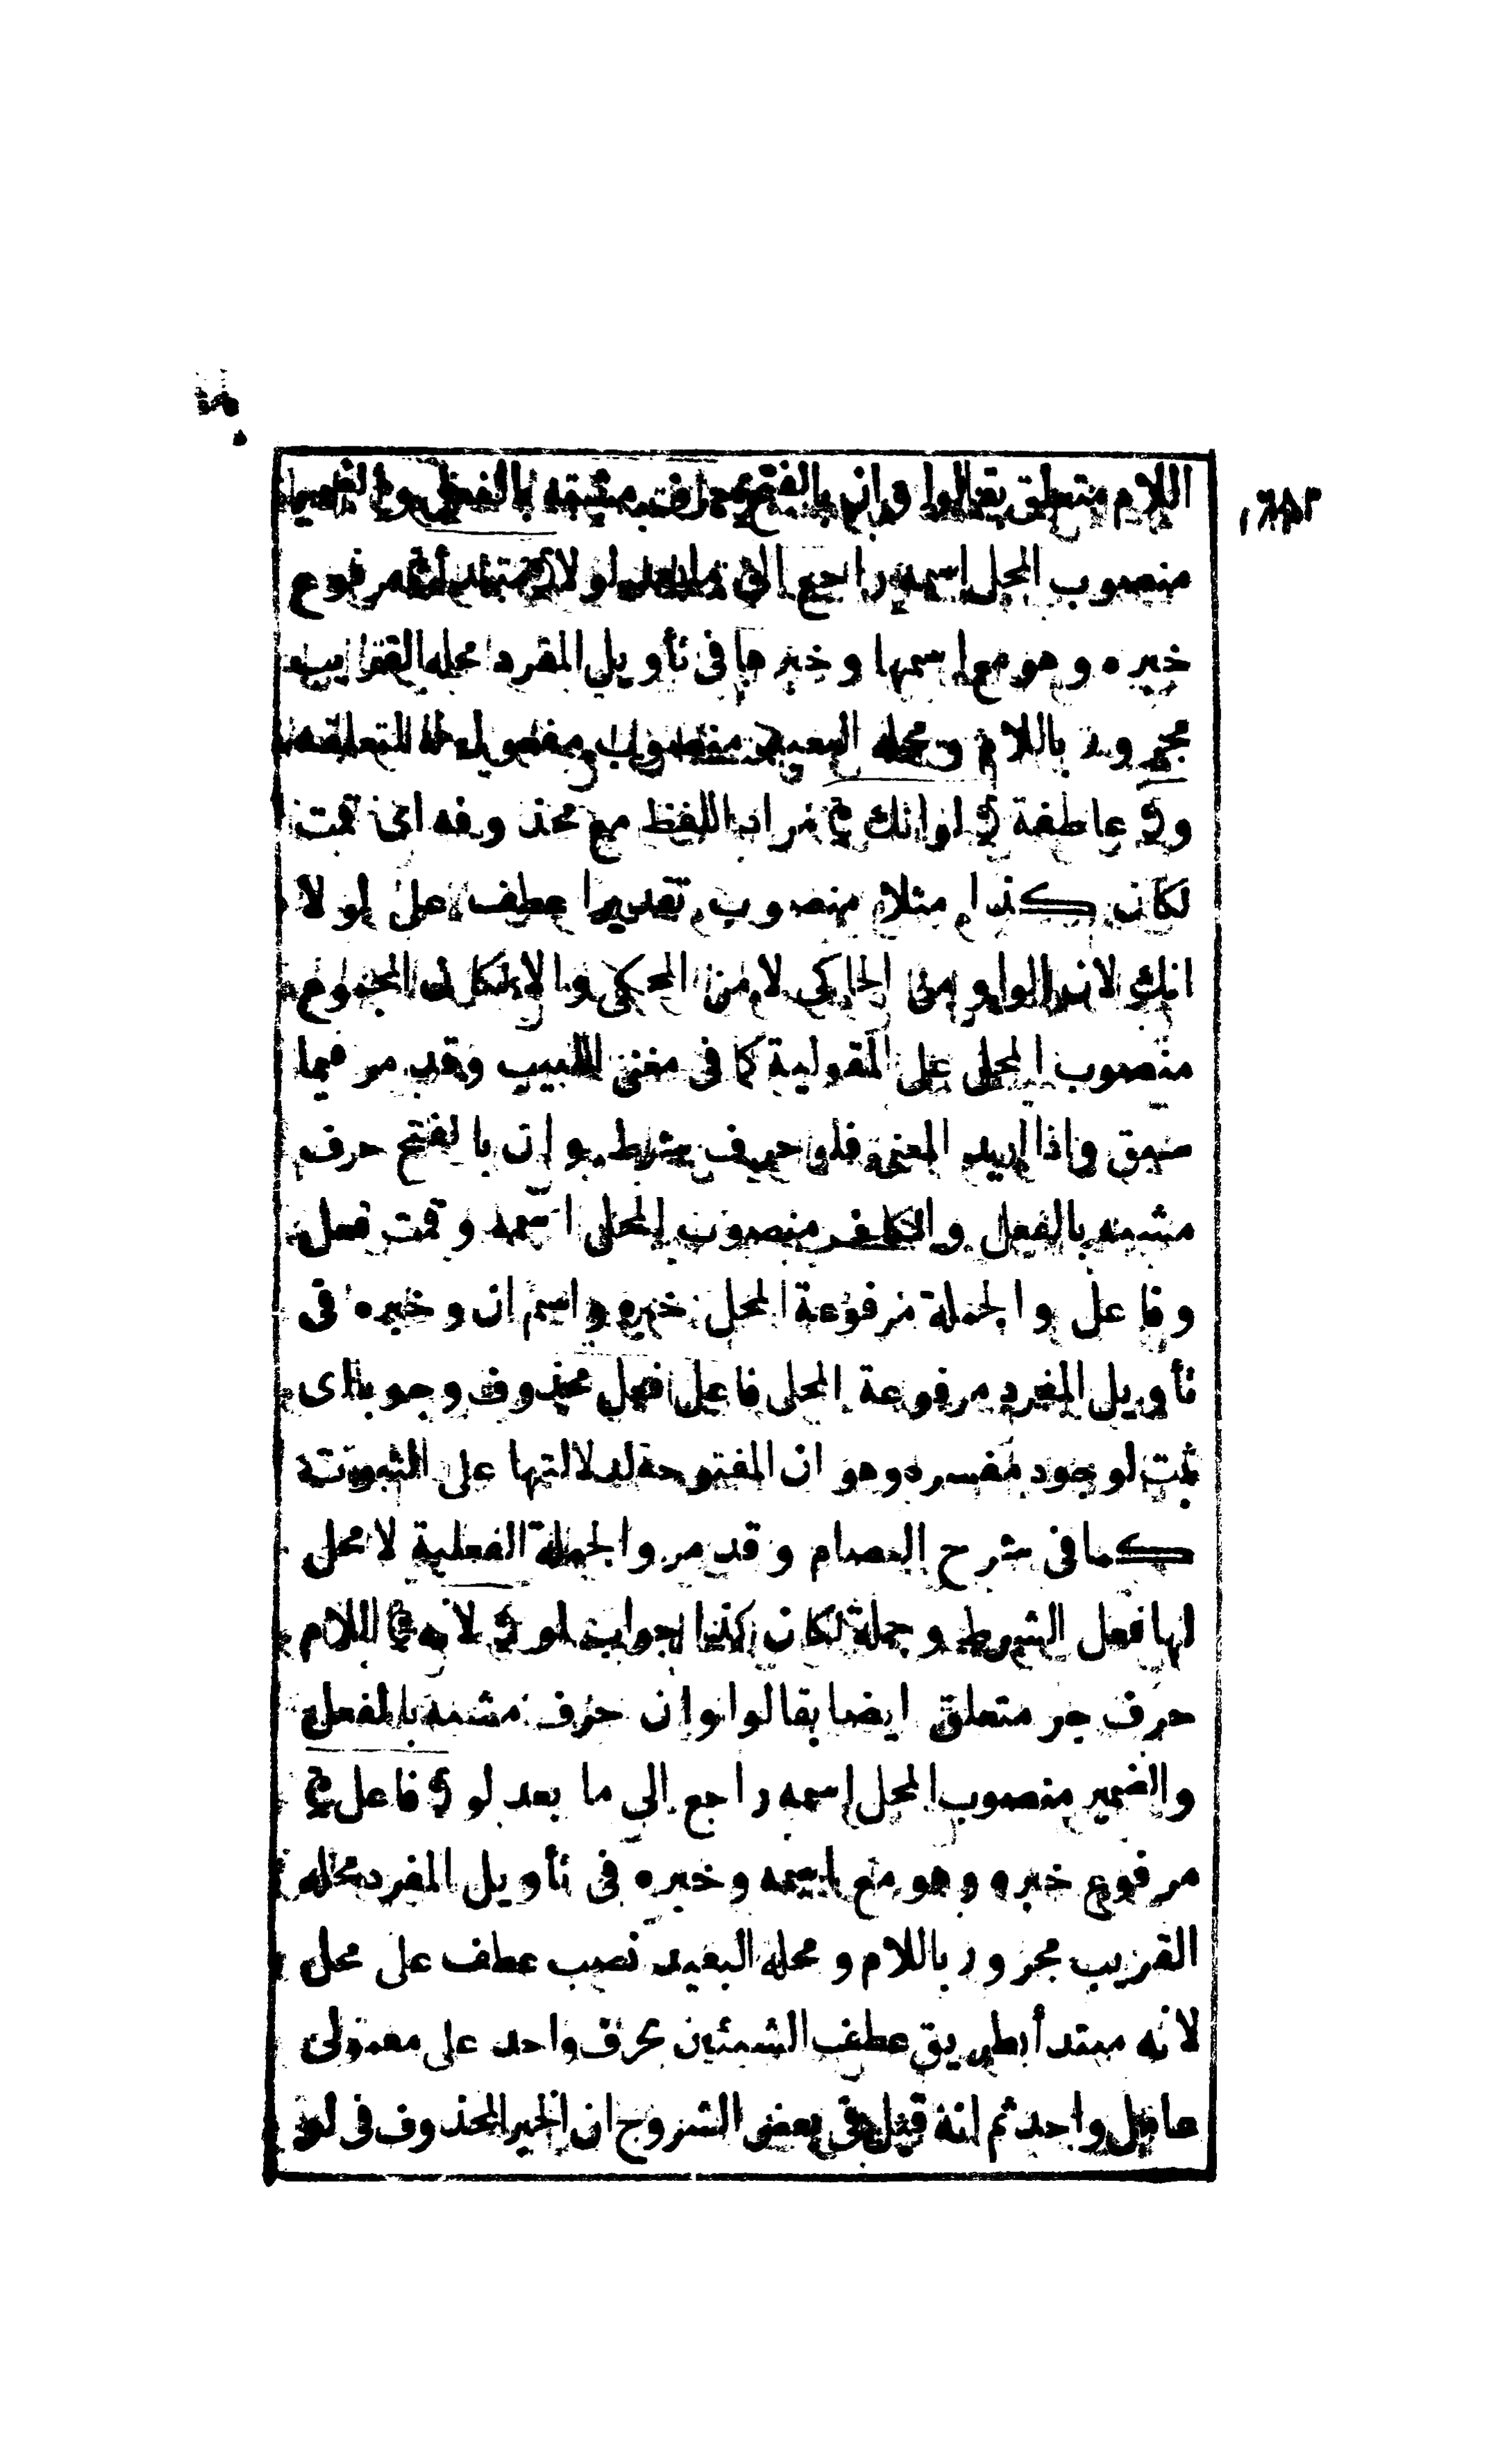 اللام متعلق بقالوا وان بالفتح حرف مشبه بالفعل والضمير
منصوب المحل اسمه راجع الى ما بعد لولا مبتدأ مرفوع
خبره وهو مع اسمها وخبرها فى تأويل المفرد محله القريب
مجرور باللام ومحله البعيد منصوب مفعول له للتعلقه
و عاطفة لو انك مراد اللفظ مع محذوفه اى قمت
لكان كذا مثلا منصوب تقديرا عطف على لولا
انك لان الواو من الحاكى لا من المحكى والا لكان المجموع
منصوب المحل على المقولية كما فى مغنى اللبيب وقد مر فيما
سبق واذا اريد المعنى فلو حرف شرط وان بالفتح حرف
مشبه بالفعل والكاف منصوب المحل اسمه وقمت فعل
وفاعل والجملة مرفوعة المحل خبره واسم ان وخبره فى
تأويل المفرد مرفوعة المحل فاعل فعل محذوف وجوبا اى
ثبت لوجود مفسره وهو ان المفتوحة لدلالتها على الثبوت
كما فى شرح العصام وقد مر والجملة الفعلية لا محل
لها فعل الشرط وجملة لكان كذا جواب لو لانه اللام
حرف جر متعلق ايضا بقالوا وان حرف مشبه بالفعل
والضمير منصوب المحل اسمه راجع الى ما بعد لو فاعل
مرفوع خبره وهو مع اسمه وخبره فى تأويل المفرد محله
القريب مجرور باللام ومحله البعيد نصب عطف على محل
لانه مبتدأ بطريق عطف الشيئين بحرف واحد على معمولى
عامل واحد ثم انه قيل فى بعض الشروح ان الخبر المحذوف فى لو